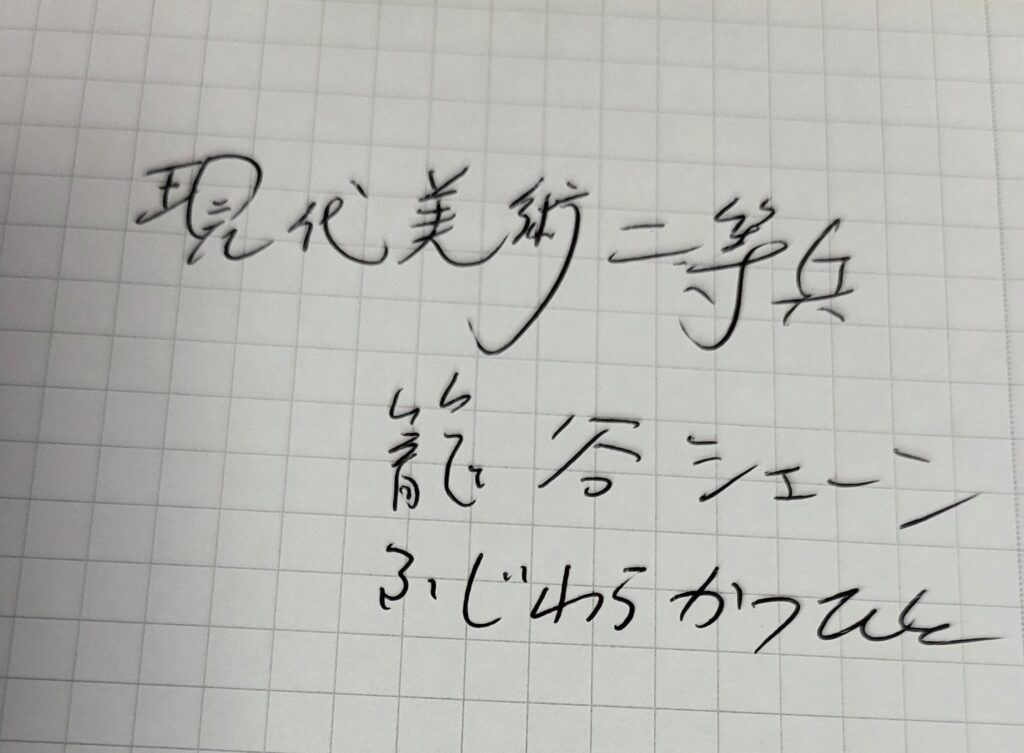 現代美術二等兵
籠谷シェーン
ふじわらかつひと